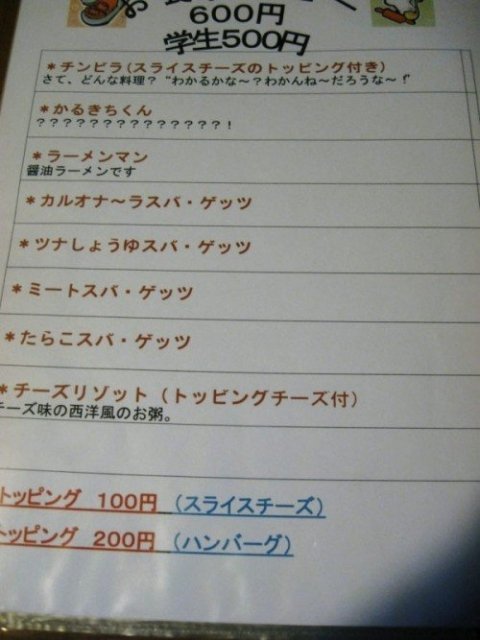 600円
学生500円
*チンピラ(スライスチーズのトッピング付き)
さて、どんな料理？“わかるかな～？わかんね～だろうな～！”
*かるきちくん
？？？？？？？？？？？？？？！
*ラーメンマン
醤油ラーメンです
*カルオナ～ラスバ・ゲッツ
*ツナしょうゆスバ・ゲッツ
*ミートスバ・ゲッツ
*たらこスバ・ゲッツ
*チーズリゾット（トッピングチーズ付）
チーズ味の西洋風のお粥。
トッピング 100円 （スライスチーズ）
トッピング 200円 （ハンバーグ）